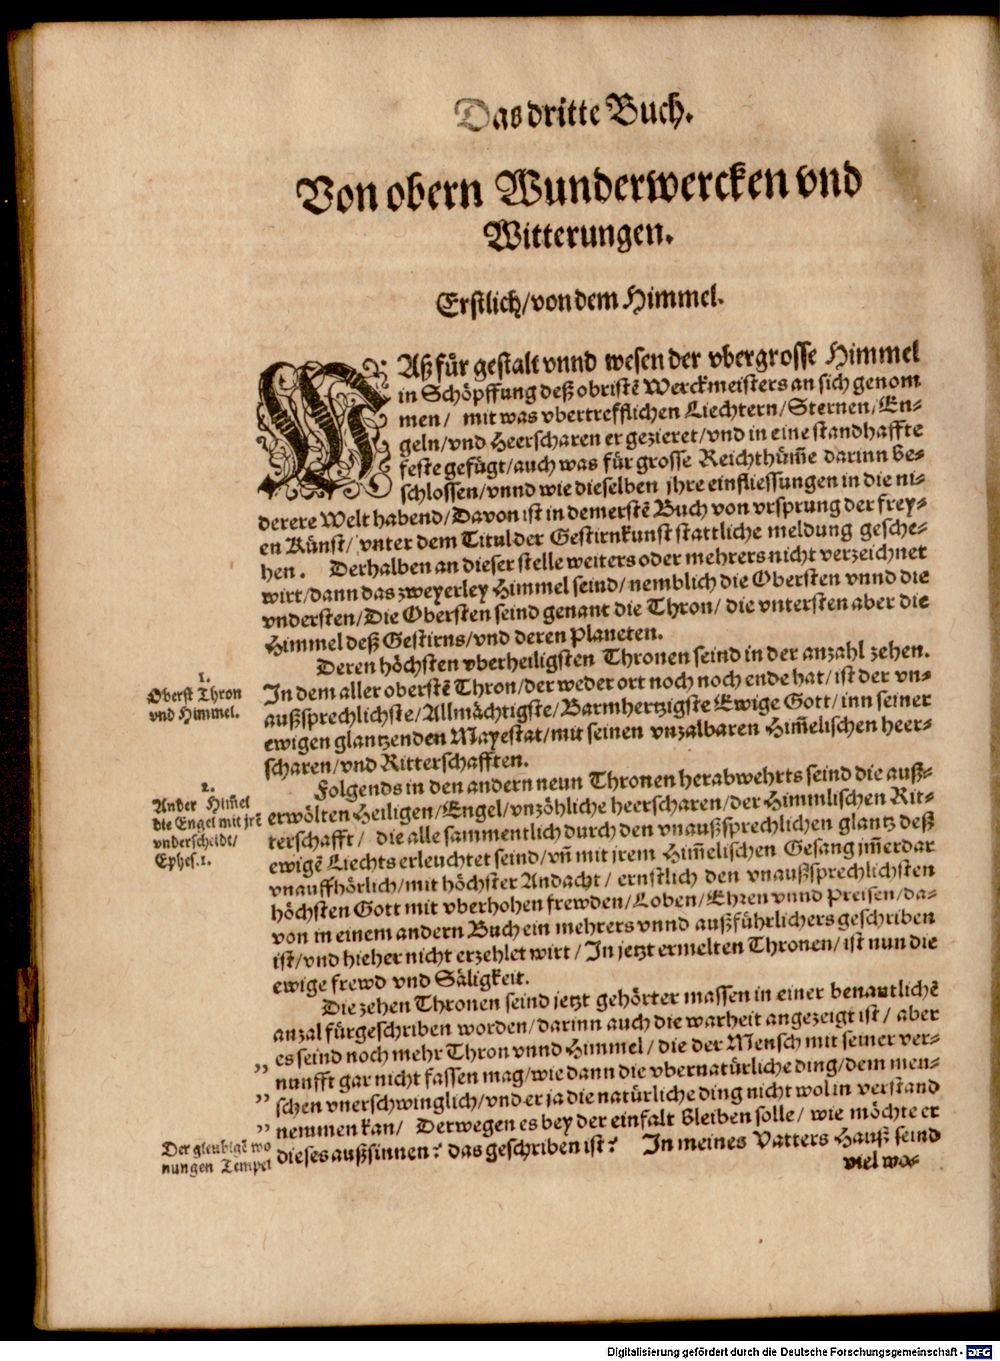 Das dritte Buch.
Von obern Wunderwercken vnd
Witterungen.
Erstlich/von dem Himmel.
WAß für gestalt vnnd wesen der vbergrosse Himmel
in Schöpffung deß obristē Werckmeisters an sich genom
men/ mit was vbertrefflichen Liechtern/Sternen/En-
geln/vnd Heerscharen er gezieret/vnd in eine standhaffte
feste gefügt/auch was für grosse Reichthüm̄e darinn be-
schlossen/vnnd wie dieselben jhre einfliessungen in die ni-
derere Welt habend/Davon ist in dem erstē Buch von vrsprung der frey-
en Künst/ vnter dem Titul der Gestirnkunst stattliche meldung gesche-
hen. Derhalben an dieser stelle weiters oder mehrers nicht verzeichnet
wirt/dann das zweyerley Himmel seind/nemblich die Obersten vnnd die
vndersten/Die Obersten seind genant die Thron/ die vntersten aber die
Himmel deß Gestirns/vnd deren Planeten.
Deren höchsten vberheiligsten Thronen seind in der anzahl zehen.
1.
Oberst Thron
vnd Himmel.
In dem aller oberstē Thron/der weder ort noch noch ende hat/ist der vn-
außsprechlichste/Allmächtigste/Barmhertzigste Ewige Gott/inn seiner
ewigen glantzenden Mayestat/mit seinen vnzalbaren Him̄elischen heer-
scharen/vnd Ritterschafften.
2.
Ander Him̄el
die Engel mit jrē
vnderscheidt/
Ephes.1.
Folgends in den andern neun Thronen herabwehrts seind die auß-
erwölten Heiligen/Engel/vnzöhliche heerscharen/der Himmlischen Rit-
terschafft/ die alle sammentlich durch den vnaußsprechlichen glantz deß
ewigē Liechts erleuchtet seind/vn̄ mit jrem Him̄elischen Gesang jm̄erdar
vnauffhörlich/mit höchster Andacht/ ernstlich den vnaußsprechlichsten
höchsten Gott mit vberhohen frewden/Loben/Ehren vnnd Preisen/da-
von in einem andern Buch ein mehrers vnnd außführlichers geschriben
ist/vnd hieher nicht erzehlet wirt/In jetzt ermelten Thronen/ist nun die
ewige frewd vnd Säligkeit.
Die zehen Thronen seind jetzt gehörter massen in einer benantlichē
anzal fürgeschriben worden/darinn auch die warheit angezeigt ist/ aber
es seind noch mehr Thron vnnd Himmel/ die der Mensch mit seiner ver-
„ nunfft gar nicht fassen mag/wie dann die vbernatürliche ding/dem men-
„ schen vnerschwinglich/vnd er ja die natürliche ding nicht wol in verstand
„ nemmen kan/ Derwegen es bey der einfalt bleiben solle/ wie möchte er
Der gleubigē wo
nungen Tempel
dieses außsinnen? das geschriben ist? In meines Vatters Hauß seind
viel wo-
Digitalisierung gefördert durch die Deutsche Forschungsgemeinschaft - DFG